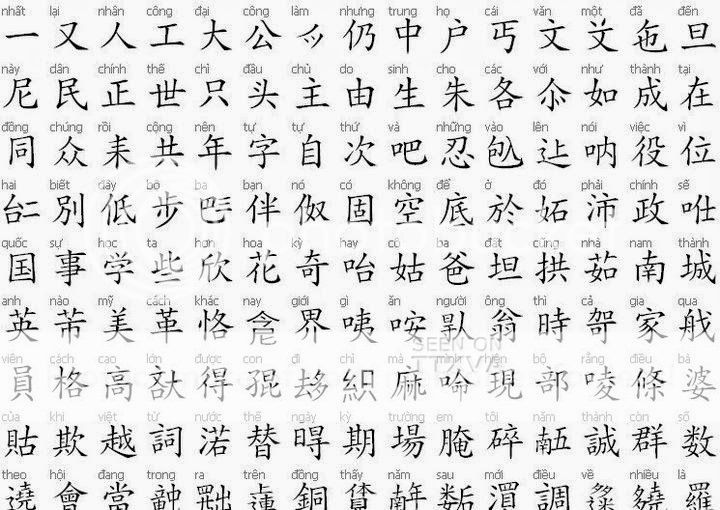 nhất lại nhân công đại công làm nhưng trung họ cái văn một đã đến
一 又 人 工 大 公 𫜵 仍 中 户 丐 文 𠬠 㐌 旦
này dân chính thế chỉ đầu chủ do sinh cho các với như thành tại
尼 民 正 世 只 头 主 由 生 朱 各 𠇍 如 成 在
đồng chúng rồi cộng nên tự tự thứ và những vào lên nói việc vì
同 众 耒 共 年 字 自 次 吧 忍 呐 役 位
hai biết đây bộ ba bạn nó có không để ở đó phải chính sẽ
𠄩 別 低 步 𠀧 伴 伮 固 空 底 於 妬 沛 政
quốc sự học ta hơn hoa kỳ hay cô ba đất cũng nhà nam thành
国 事 学 些 欣 花 奇 咍 姑 爸 坦 拱 茹 南 城
anh nào mỹ cách khác nay giới gì ăn người ông thì cả gia qua
英 芇 美 革 恪 界 咦 咹 翁 時 哿 家
viên cách cao lớn được con đi chỉ mà mình hiện bộ rằng điều bà
員 格 高 得 麻 現 部 㖫 條 婆
của khi việt từ nước thế ngày kỳ trường em tôi năm thành còn số
𧵑 欺 越 詞 渃 替 期 場 腌 碎 𠄼 誠 群 数
theo hội đang trong ra trên đồng thấy năm sau mới điều về nhiều là
遶 會 當 銅 調 羅
SEEN ON